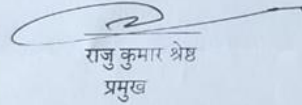 राजु कुमार श्रेष्ठ
प्रमुख